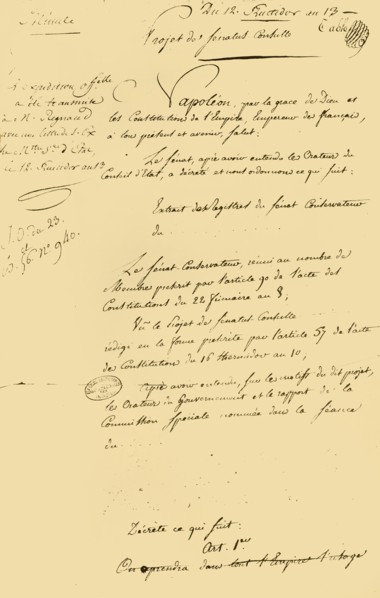 Minute
Du 12. Fructidor an 13
Table
Projet de Senatus Consulte
L'expédition offlle
a été transmise
à M. Regnaud
par une lettre de S. Ex
le Mtre Sre d'Etat
le 12. Fructidor an 13
Napoléon, par la grace de Dieu et
les Constitutions de l'Empire, Empereur des français,
à tous présens et avenir, salut;
Le Sénat, après avoir entendu les Orateurs du
Conseil d'Etat, a décrété et nous ordonnons ce qui suit:
Extrait des Registres du Sénat Conservateur
du
J. O. du 23.
B. 56. nº 940.
Le Sénat-Conservateur, réuni au nombre de
Membres prescrit par l'article 90 de l'acte des
Constitutions du 22 frimaire an 8;
Vu le Projet de Senatus Consulte
rédigé en la forme prescrite par l'article 57 de l'acte
des Constitutions du 16 thermidor an 10;
Après avoir entendu, sur les motifs du dit projet,
les Orateurs du Gouvernement et le rapport de la
Commission Spéciale nommée dans la séance
du
Décrète ce qui suit:
Art. 1er
On reprendra dans tout l'Empire l'usage